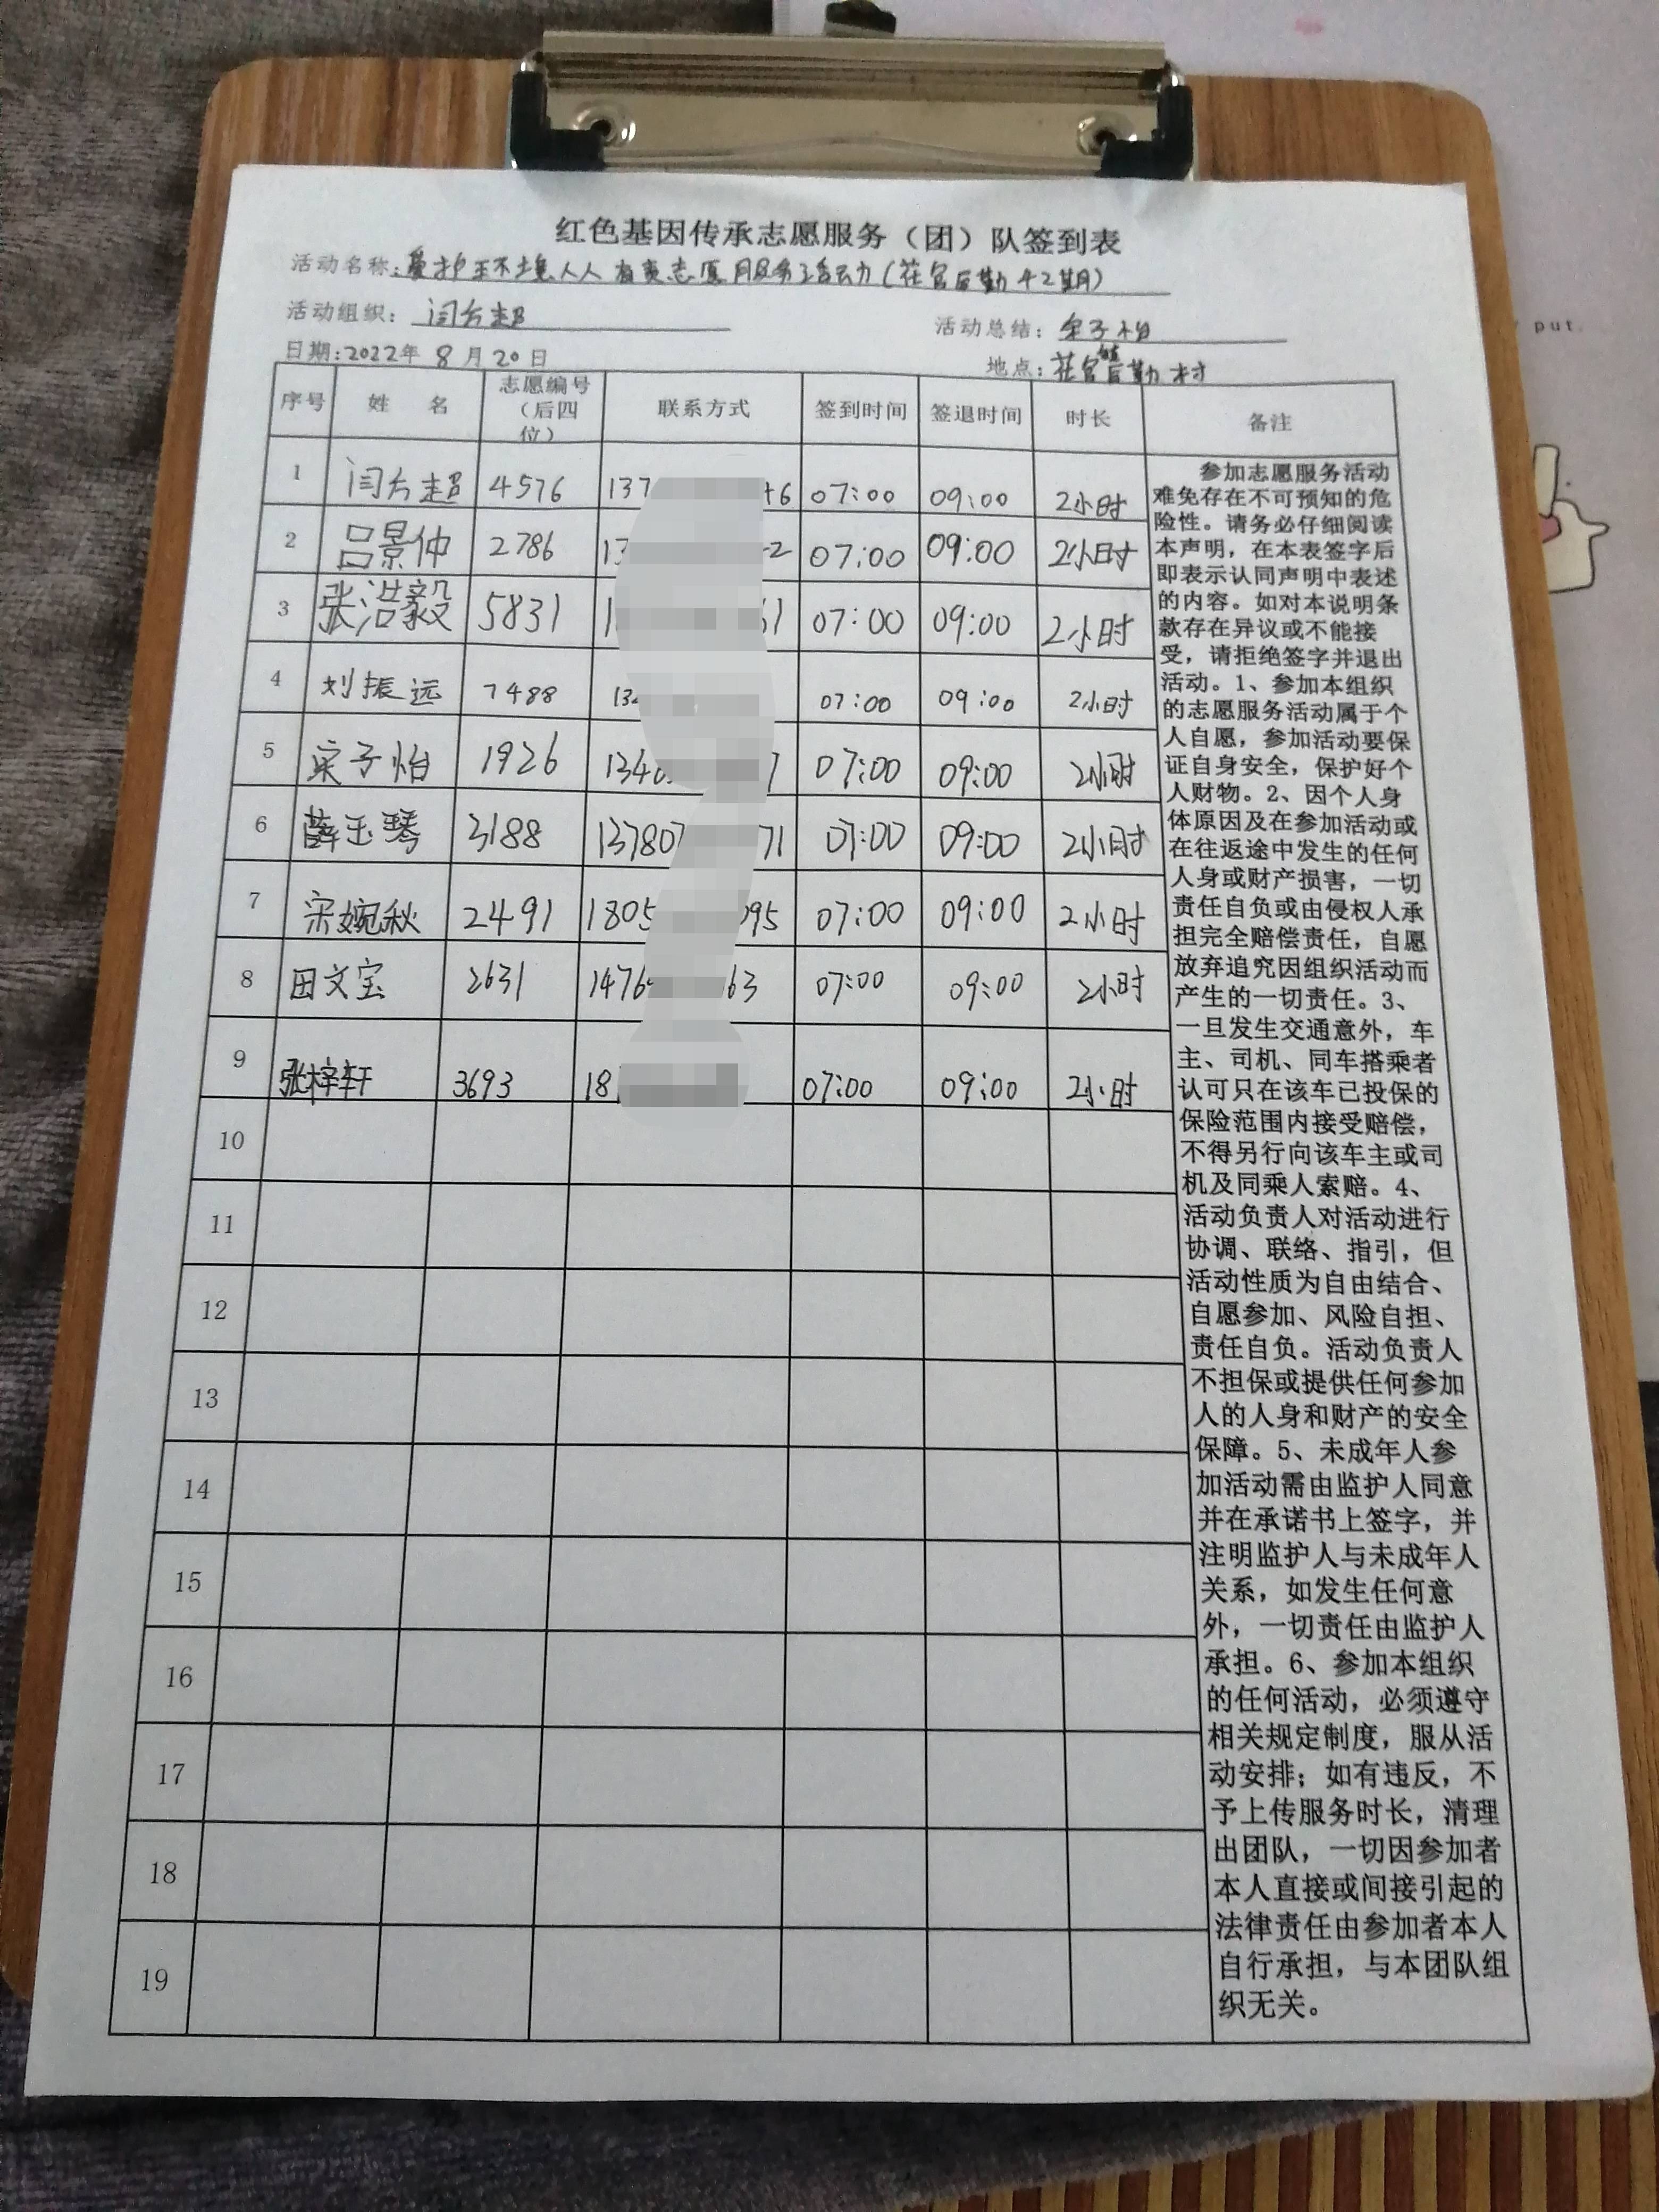 红色基因传承志愿服务（团）队签到表
活动名称：爱护环境人人有责志愿服务活动(花官后勤42期)
活动组织：闫台超 活动总结：子怡
日期:2022年8月20日 地点：花官镇后勤村
序号 姓 名 志愿编号（后四位） 联系方式 签到时间 签退时间 时长 备注
1 闫台超 4576 137 46 07:00 09:00 2小时
2 吕景仲 2786 13 2 07:00 09:00 2小时
3 张浩毅 5831 1 61 07:00 09:00 2小时
4 刘振远 7488 13 07:00 09:00 2小时
5 子怡 1926 134 7 07:00 09:00 2小时
6 薛玉琴 3188 13780 71 07:00 09:00 2小时
7 宋婉秋 2491 1805 095 07:00 09:00 2小时
8 田文宝 2631 1476 63 07:00 09:00 2小时
9 张梓轩 3693 18 07:00 09:00 2小时
10
11
12
13
14
15
16
17
18
19
参加志愿服务活动
难免存在不可预知的危
险性。请务必仔细阅读
本声明，在本表签字后
即表示认同声明中表述
的内容。如对本说明条
款存在异议或不能接
受，请拒绝签字并退出
活动。1、参加本组织
的志愿服务活动属于个
人自愿，参加活动要保
证自身安全，保护好个
人财物。2、因个人身
体原因及在参加活动或
在往返途中发生的任何
人身或财产损害，一切
责任自负或由侵权人承
担完全赔偿责任，自愿
放弃追究因组织活动而
产生的一切责任。3、
一旦发生交通意外，车
主、司机、同车搭乘者
认可只在该车已投保的
保险范围内接受赔偿，
不得另行向该车主或司
机及同乘人索赔。4、
活动负责人对活动进行
协调、联络、指引，但
活动性质为自由结合、
自愿参加、风险自担、
责任自负。活动负责人
不担保或提供任何参加
人的人身和财产的安全
保障。5、未成年人参
加活动需由监护人同意
并在承诺书上签字，并
注明监护人与未成年人
关系，如发生任何意
外，一切责任由监护人
承担。6、参加本组织
的任何活动，必须遵守
相关规定制度，服从活
动安排；如有违反，不
予上传服务时长，清理
出团队，一切因参加者
本人直接或间接引起的
法律责任由参加者本人
自行承担，与本团队组
织无关。
put.